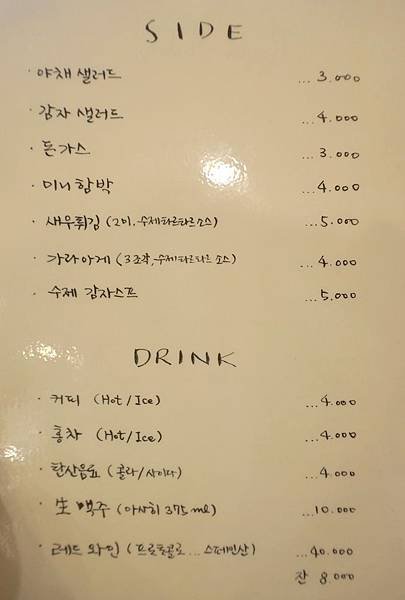 SIDE
· 야채 샐러드 ... 3.000
· 감자 샐러드 ... 4.000
· 돈가스 ... 3.000
· 미니함박 ... 4.000
· 새우튀김 (2미, 수제타르타르소스) ... 5.000
· 가라아게 (3조각, 수제타르타르 소스) ... 4.000
· 수제 감자스프 ... 5.000
DRINK
· 커피 (Hot/Ice) ... 4.000
· 홍차 (Hot/Ice) ... 4.000
· 탄산음료 (콜라/사이다) ... 4.000
· 生 맥주 (아사히 375ml) ... 10.000
· 레드 와인 (프로토콜로 ... 스페인산) ... 40.000
잔 8.000